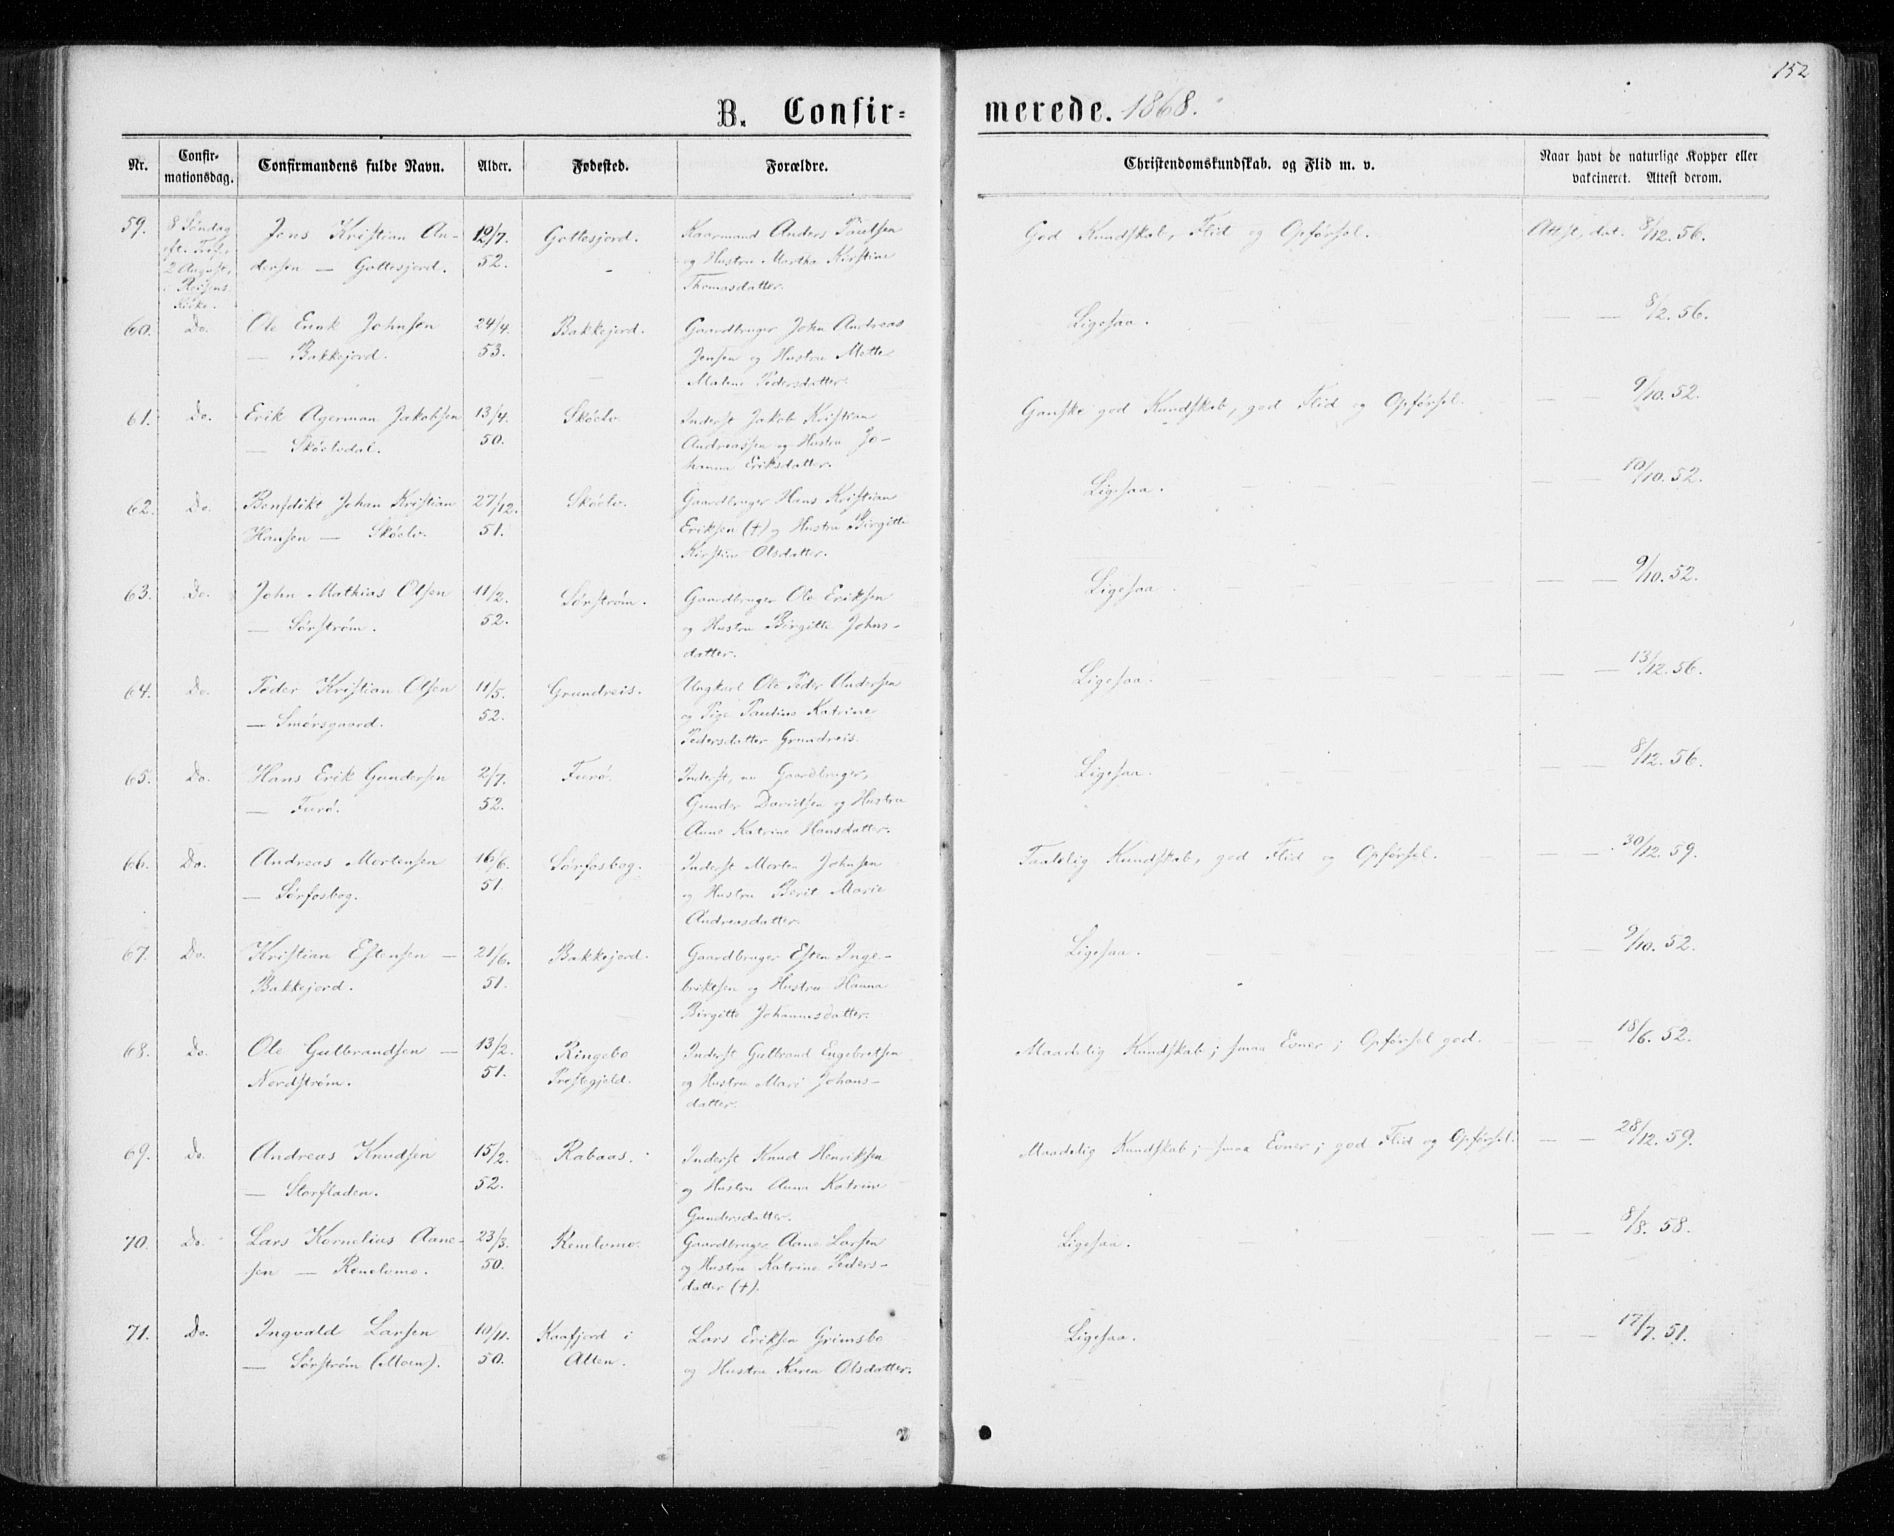 152
B. Confir=
merede. 1868.
Nr.
Confir-
mationsdag.
Confirmandens fulde Navn.
Alder.
Fødested.
Forældre.
Christendomskundskab. og Flid m. v.
Naar havt de naturlige Kopper eller
vakcineret. Attest derom.
59. 8 Søndag Jens Kristian An- 12/7. Gottesjord. Kaarmand Anders Paulsen God Kundskab, Flid og Opførsel. Attst. dat. 8/12. 56.
2 August, dersen — Gottesjord. 52. og Hustru Martha Kirstine
Thomasdatter.
60. Do. Ole Enok Johnsen 24/4. Bakkejord. Gaardbruger John Andreas Ligesaa. — — 8/2. 56.
— Bakkejord. 53. Jensen og Hustru Mette
Malene Pedersdatter.
61. Do. Erik Agerman Jakobsen 13/4. Skøelv. Inderst Jakob Kristian Ganske god Kundskab, god Flid og Opførsel. — — 9/10. 52.
— Skøelvdal. 50. Andreassen og Hustru Jo-
hanna Eriksdatter.
62. Do. Benedikt Johan Kristian 27/12. Skøelv. Gaardbruger Hans Kristian Ligesaa. — — 10/10. 52.
Hansen — Skøelv. 51. Eriksen (†) og Hustru Birgitte
Kirstine Olsdatter.
63. Do. John Mathias Olsen 11/2. Sørstrøm. Gaardbruger Ole Eriksen Ligesaa. — — 9/10. 52.
— Sørstrøm. 52. og Hustru Birgitte Johns-
datter.
64. Do. Peder Kristian Olsen 11/5. Grundreis. Ungkarl Ole Peder Andersen Ligesaa. — 13/12. 56.
— Smørsgaard. 52. og Pige Pauline Katrine
Pedersdatter Grundreis.
65. Do. Hans Erik Gundersen 2/7. Furø. Inderst, nu Gaardbruger, Ligesaa. — — 8/12. 56.
— Furø. 52. Gunder Davidsen og Hustru
Anne Katrine Hansdatter.
66. Do. Andreas Mortensen 16/6. Sørfosbog. Inderst Morten Johnsen Taalelig Kundskab, god Flid og Opførsel. — — 30/12. 59.
— Sørfosbog. 51. og Hustru Berit Marie
Andreasdatter.
67. Do. Kristian Estensen — 21/6. Bakkejord. Gaardbruger Esten Inge- Ligesaa. — — 9/10. 52.
Bakkejord. 51. briktsen og Hustru Hanna
Birgitte Johannesdatter.
68. Do. Ole Gulbrandsen — 13/2. Ringebo Inderst Gulbrand Engebretsen Maadelig Kundskab; smaa Evner; Opførsel god. — — 18/6. 52.
Nordstrøm. 51. Prestegjeld. og Hustru Mari Johans-
datter.
69. Do. Andreas Knudsen 15/2. Rabaas. Inderst Knud Henriksen Maadelig Kundskab; smaa Evner; god Flid og Opførsel. — — 28/12. 59.
— Storfladen. 52. og Hustru Anne Katrine
Gundersdatter.
70. Do. Lars Kornelius Aane- 23/3. Renelvmo. Gaardbruger Aane Larsen Ligesaa. — — 8/8. 58.
sen — Renelvmo. 50. og Hustru Katrine Peders-
datter (†).
71. Do. Ingvald Larsen 10/11. Kaafjord i Lars Eriksen Grimsbo Ligesaa. — — 17/7. 51.
— Sørstrøm (Moen). 50. Alten. og Hustru Karen Olsdatter.